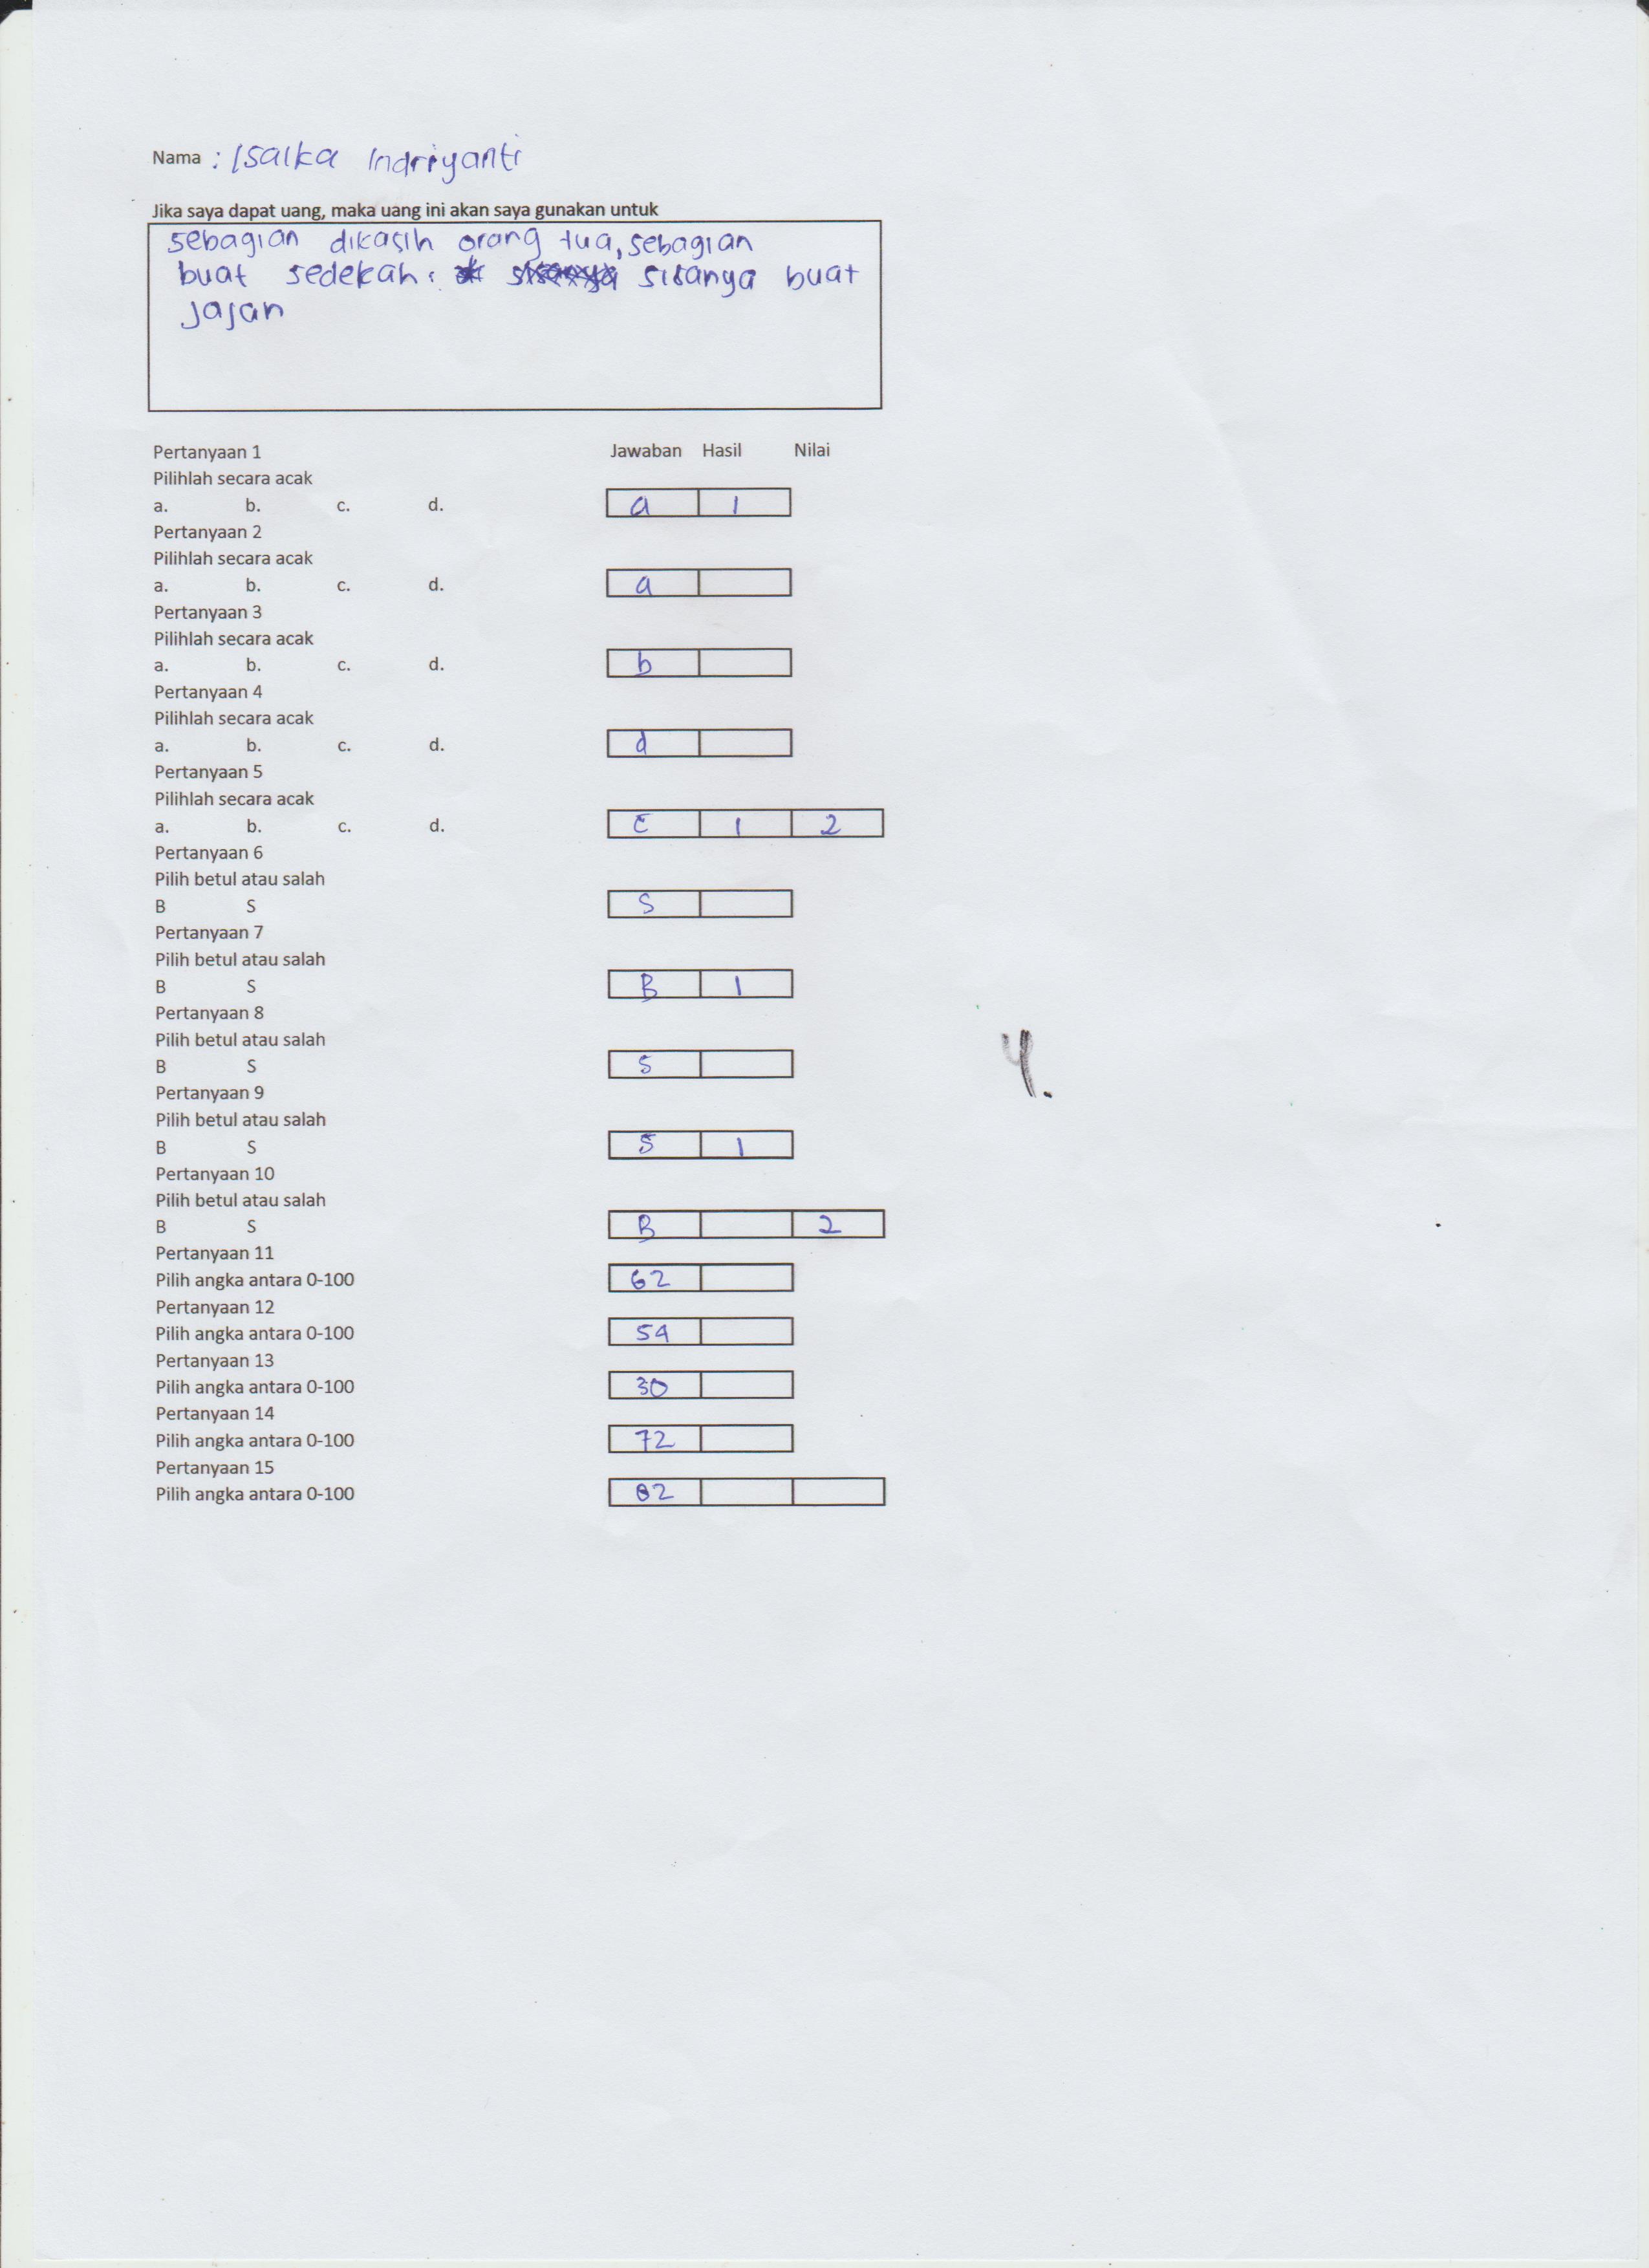 Nama : Isalka Indriyanti
Jika saya dapat uang, maka uang ini akan saya gunakan untuk
sebagian dikasih orang tua, sebagian
buat sedekah. sisanya buat
jajan
Pertanyaan 1 Jawaban Hasil Nilai
Pilihlah secara acak
a. b. c. d. a 1
Pertanyaan 2
Pilihlah secara acak
a. b. c. d. a
Pertanyaan 3
Pilihlah secara acak
a. b. c. d. b
Pertanyaan 4
Pilihlah secara acak
a. b. c. d. d
Pertanyaan 5
Pilihlah secara acak
a. b. c. d. c 1 2
Pertanyaan 6
Pilih betul atau salah
B S S
Pertanyaan 7
Pilih betul atau salah
B S B 1
Pertanyaan 8
Pilih betul atau salah
B S S
Pertanyaan 9
Pilih betul atau salah
B S S 1
Pertanyaan 10
Pilih betul atau salah
B S B 2
Pertanyaan 11
Pilih angka antara 0-100 62
Pertanyaan 12
Pilih angka antara 0-100 54
Pertanyaan 13
Pilih angka antara 0-100 30
Pertanyaan 14
Pilih angka antara 0-100 72
Pertanyaan 15
Pilih angka antara 0-100 82
4.